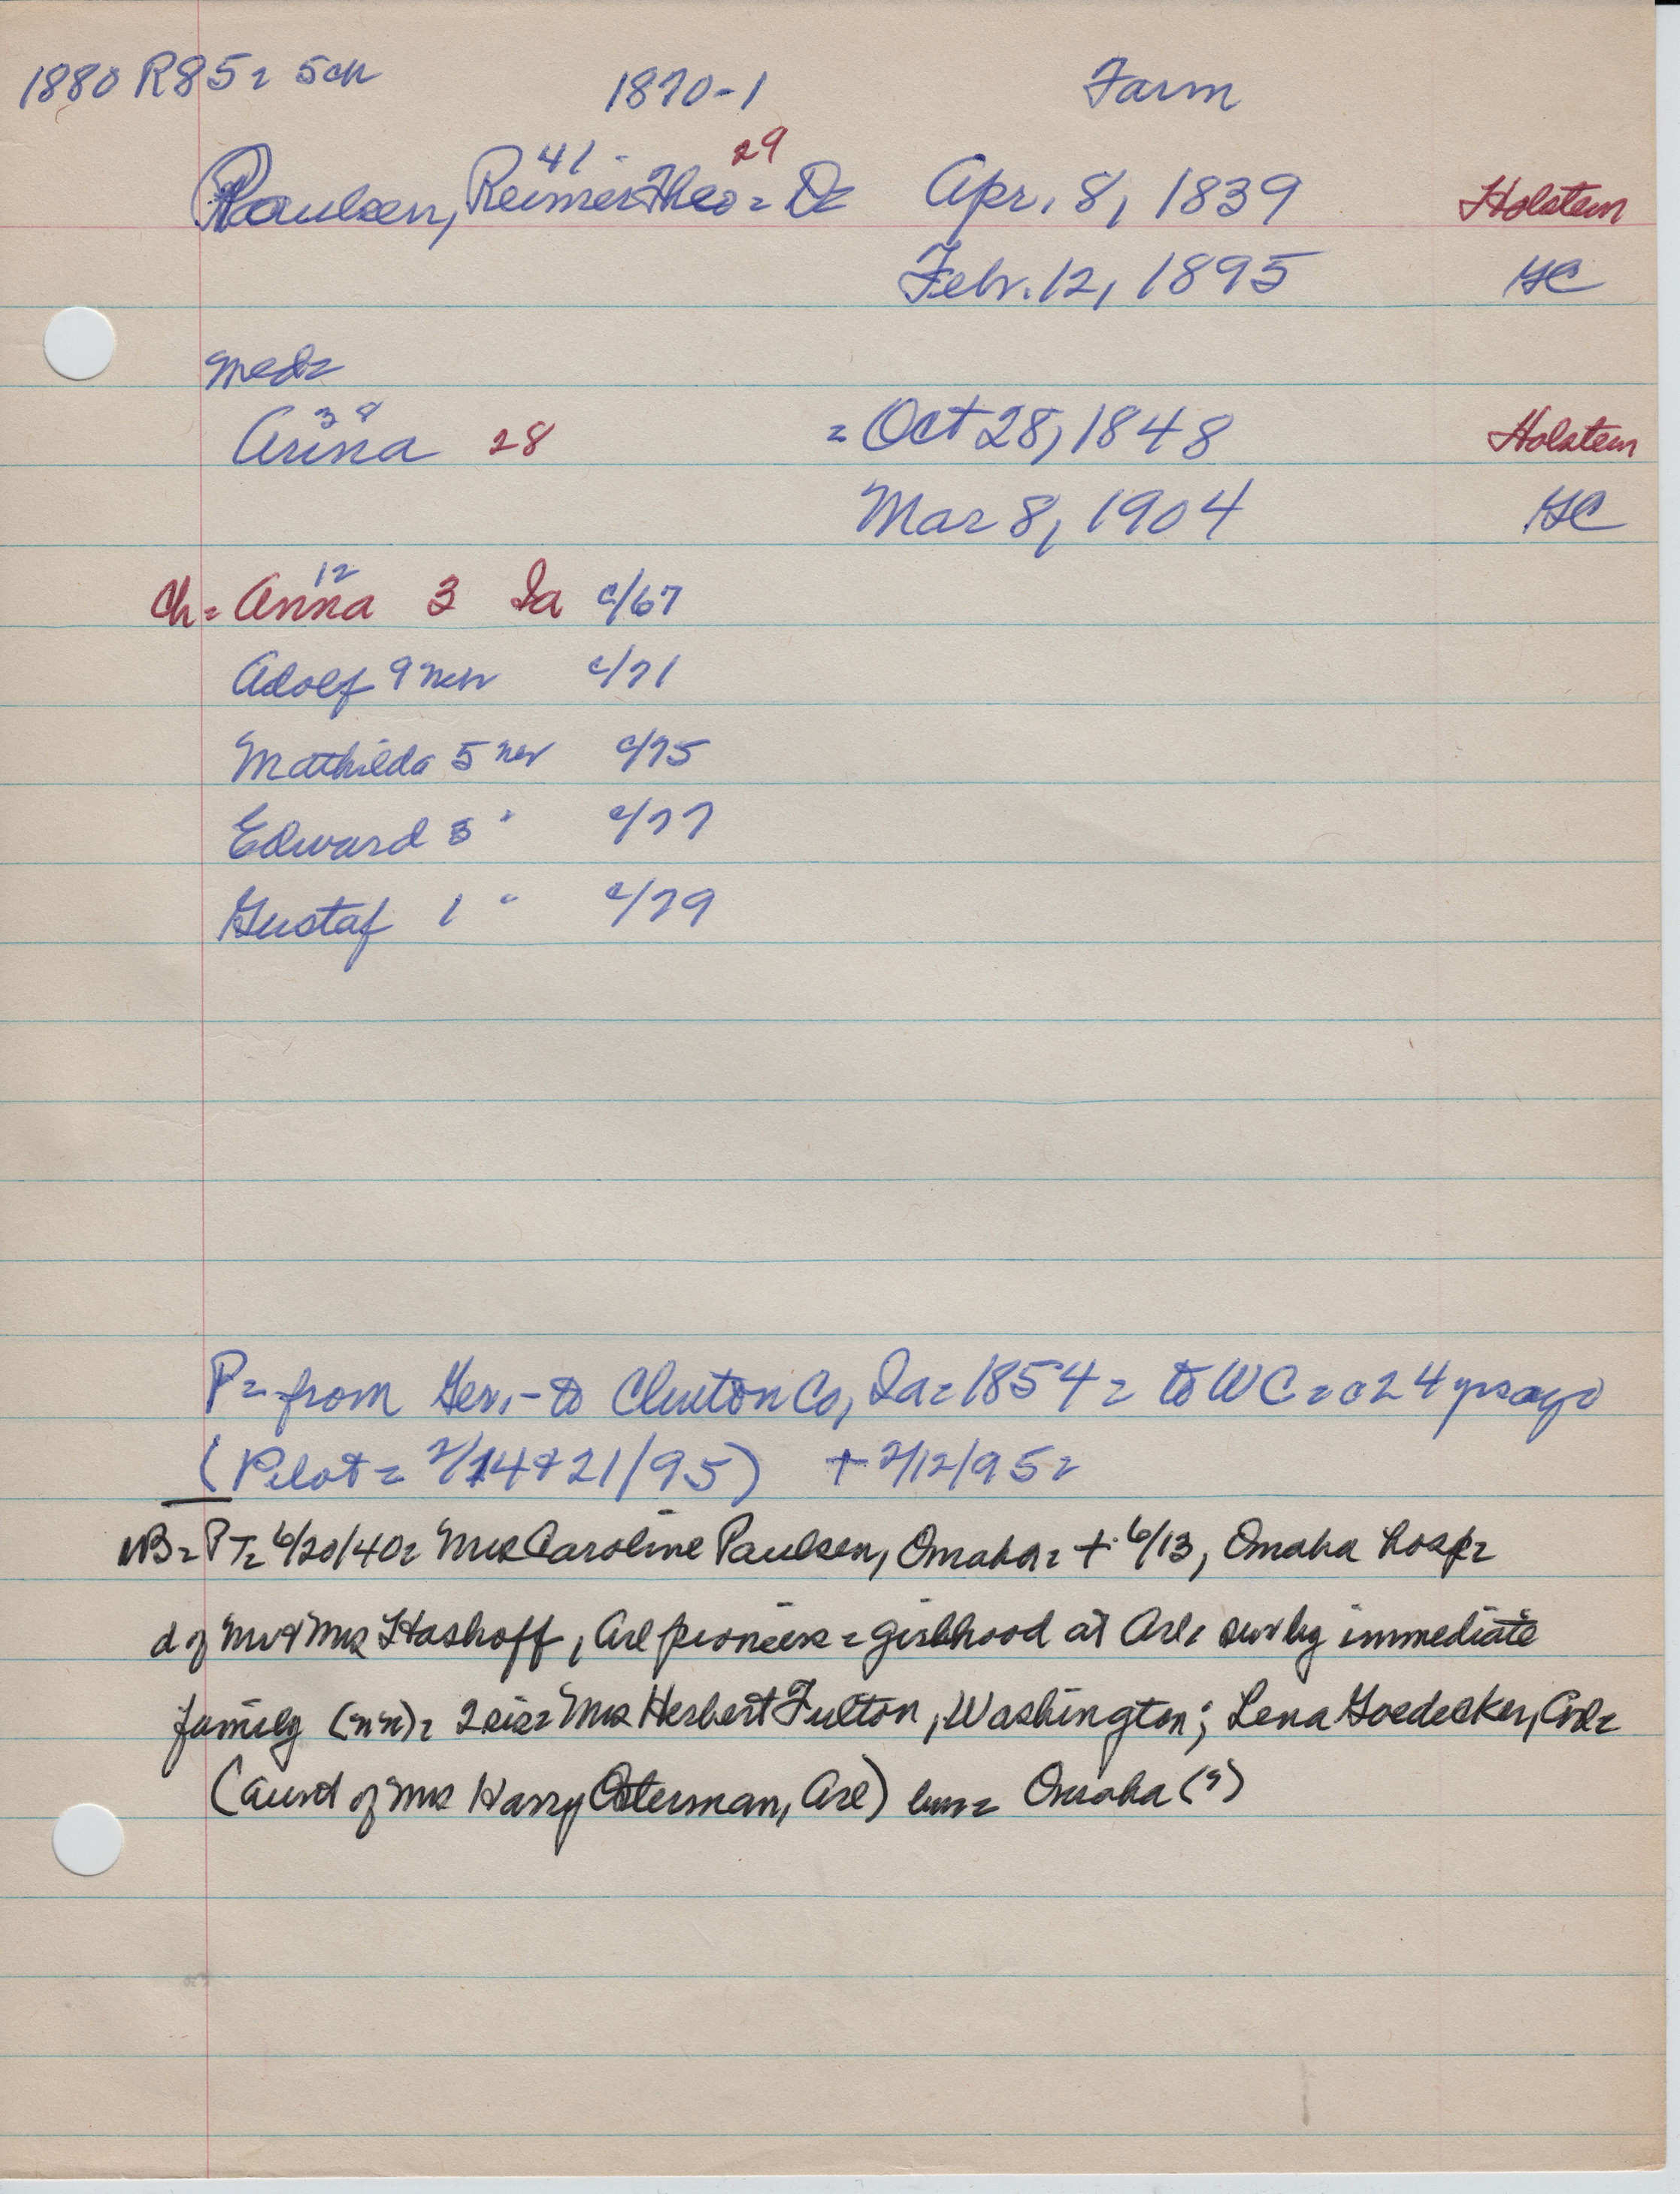 1880 R85= 5ch 1870-1 Farm
41 29
Paulsen, Reimer Theo= D= Apr. 8, 1839 Holstein
Febr. 12, 1895 GC
med=
38
Anna 28 = Oct 28, 1848 Holstein
Mar 8, 1904 GC
12
Ch= Anna 3 Ia c/67
Adolf 9 neb c/71
Mathilda 5 neb c/75
Edward 3 " c/77
Gustaf 1 " c/79
P= from Ger.- to Clinton Co, Ia= 1854= to WC= c24 yrs ago
(Pilot= 2/14+21/95) + 2/12/95=
NB= PT= 6/20/40= Mrs Caroline Paulsen, Omaha= + 6/13, Omaha hosp=
d of Mr+Mrs Hashoff, Arl pioneers= girlhood at Arl= sur by immediate
family (nn)= 2 sis= Mrs Herbert Fulton, Washington; Lena Goedecker, Arl=
(aunt of Mrs Harry Osterman, Arl) bur= Omaha (?)